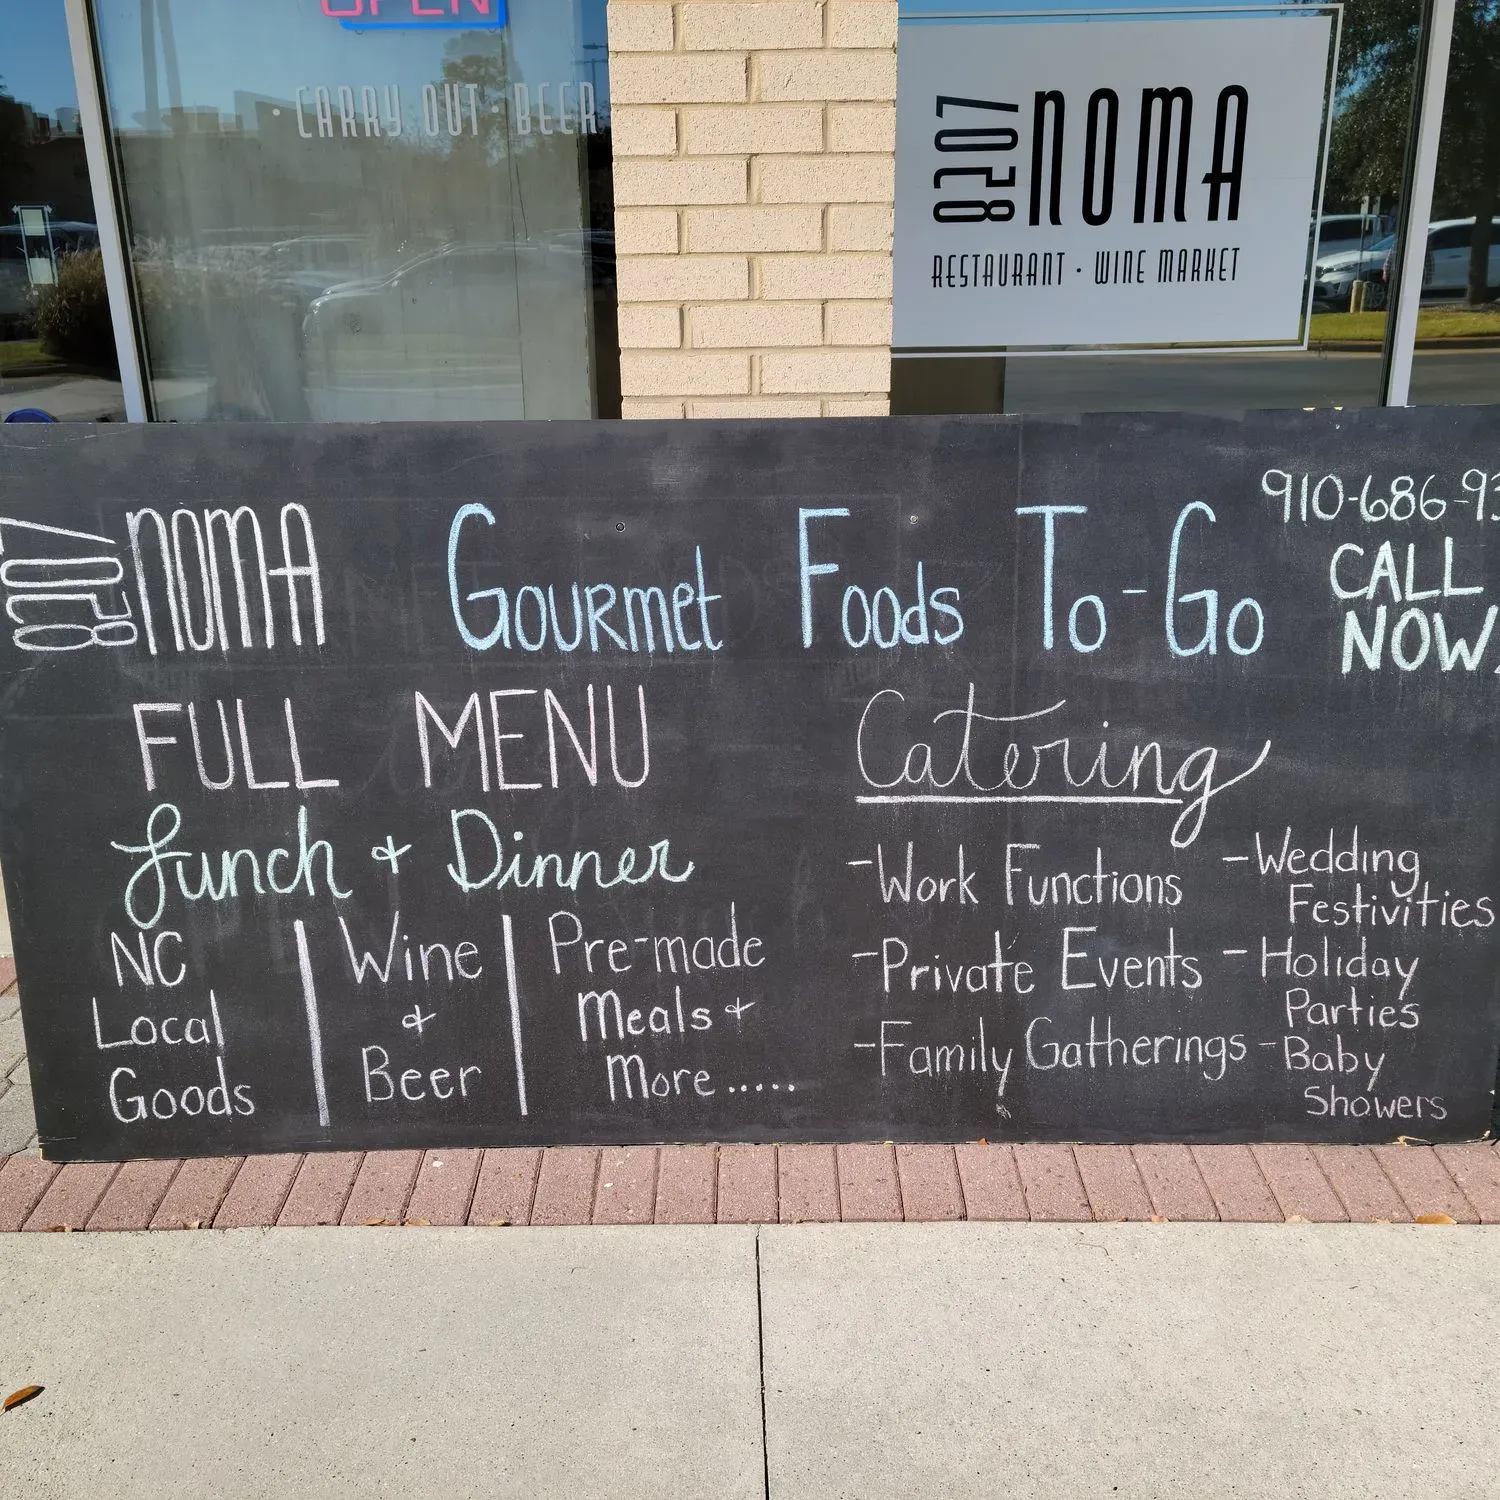 OPEN
· CARRY OUT · BEER
8207 NOMA
RESTAURANT · WINE MARKET
8207 NOMA
Gourmet Foods To-Go
910-686-93
CALL
NOW
FULL MENU
Lunch & Dinner
NC
Local
Goods
Wine
&
Beer
Pre-made
Meals &
More.....
Catering
-Work Functions
-Private Events
-Family Gatherings
-Wedding
Festivities
-Holiday
Parties
-Baby
Showers